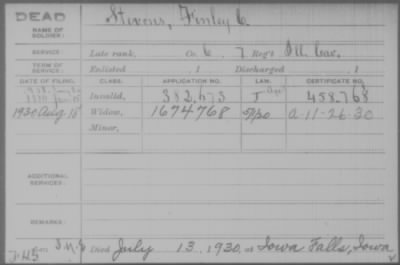 DEAD
NAME OF SOLDIER:
Stevens, Finley C.
SERVICE:
Late rank, Co. C, 7 Reg't Ill. Cav.
TERM OF SERVICE:
Enlisted , 1 Discharged , 1
DATE OF FILING. CLASS. APPLICATION NO. LAW. CERTIFICATE NO.
Invalid, 382,673 J 458.768
1930 Aug 15 Widow, 1674768 5/1/20 A 11-26-30
Minor,
ADDITIONAL SERVICES:
REMARKS:
Died July 13, 1930, at Iowa Falls, Iowa